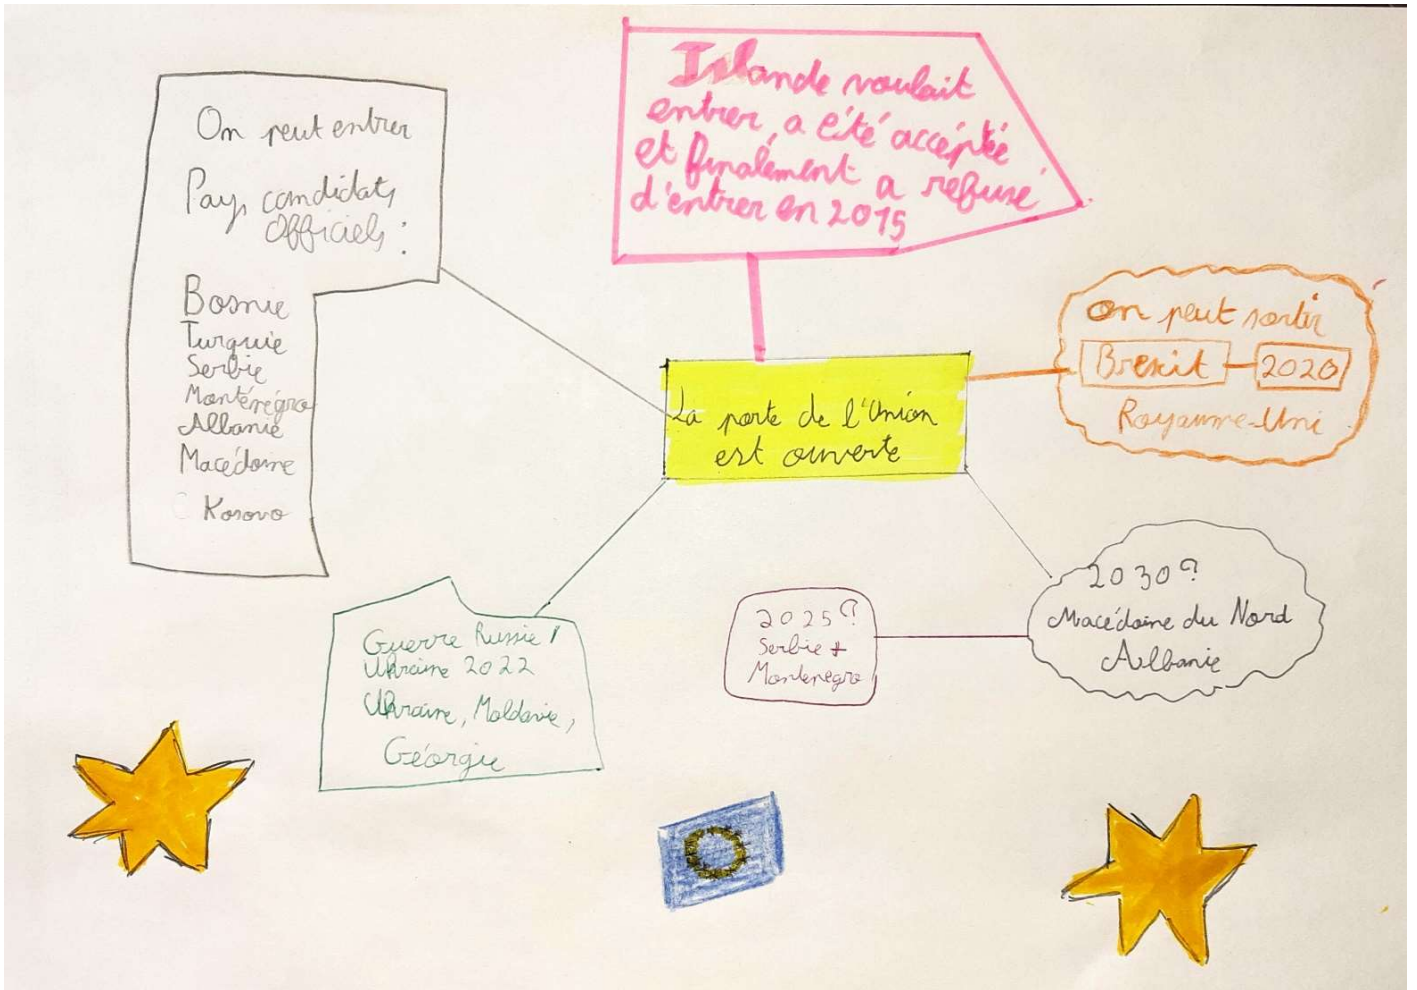 On peut entrer
Pays candidats
officiels :
Bosnie
Turquie
Serbie
Monténégro
Albanie
Macédoine
Kosovo
Islande voulait
entrer, a été accéptée
et finalement a refusé
d'entrer en 2015
La porte de l'Union
est ouverte
On peut sortir
Brexit - 2020
Royaume-Uni
Guerre Russie /
Ukraine 2022
Ukraine, Moldavie,
Géorgie
2025 ?
Serbie +
Montenegro
2030 ?
Macédoine du Nord
Albanie